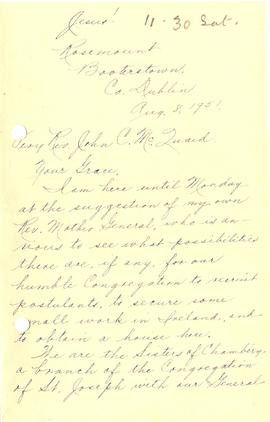 Jesus! 11-30 Sat.
Rosemount
Booterstown,
Co. Dublin
Aug. 8, 1951.
Very Rev. John C. McQuaid
Your Grace,
I am here until Monday
at the suggestion of my own
Rev. Mother General, who is anx-
ious to see what possibilities
there are, if any, for our
humble Congregation to recruit
postulants, to secure some
small work in Ireland, and
to obtain a house here.
The are the Sisters of Chambery,
a branch of the Congregation
of St. Joseph with our General